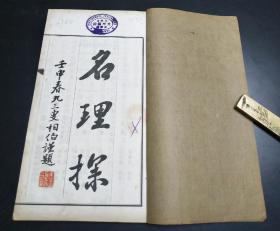 名理探
壬申春九三叟相伯謹題